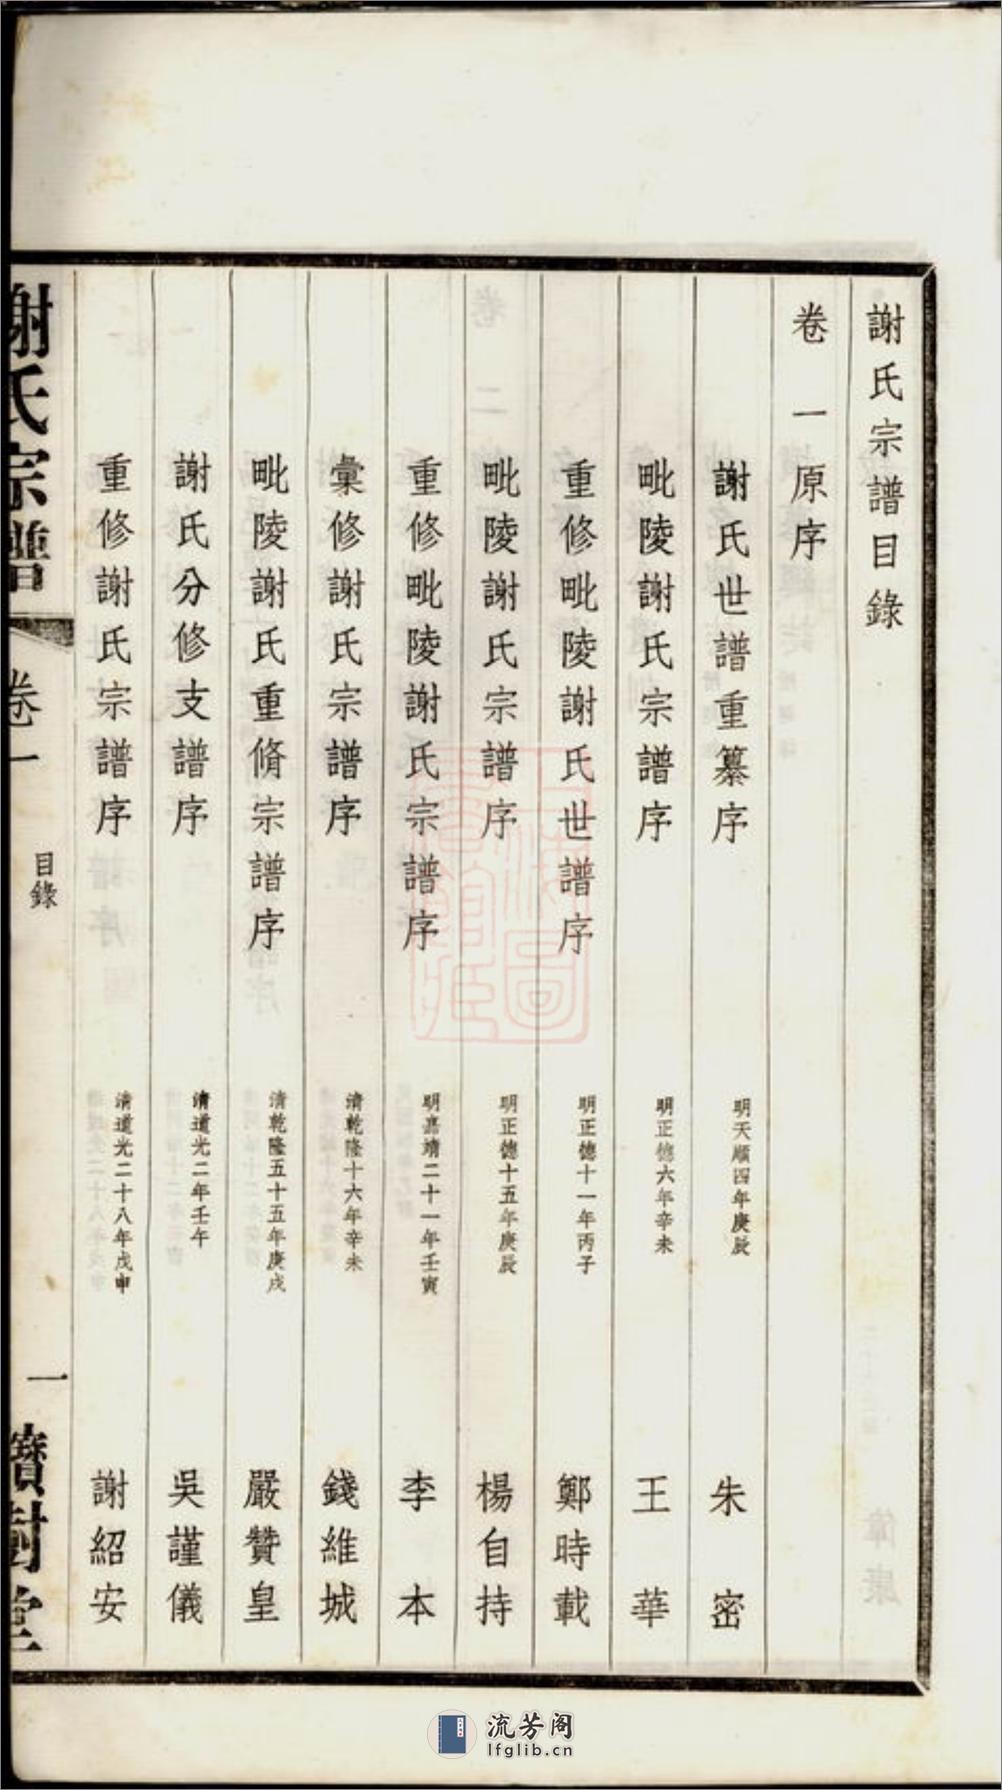 謝氏宗譜目錄
卷一 原序
謝氏世譜重纂序 明天順四年庚辰 朱密
毗陵謝氏宗譜序 明正德六年辛未 王華
重修毗陵謝氏世譜序 明正德十一年丙子 鄭時載
毗陵謝氏宗譜序 明正德十五年庚辰 楊自持
重修毗陵謝氏宗譜序 明嘉靖二十一年壬寅 李本
彙修謝氏宗譜序 清乾隆十六年辛未 錢維城
毗陵謝氏重脩宗譜序 清乾隆五十五年庚戌 嚴贊皇
謝氏分修支譜序 清道光二年壬午 吳謹儀
重修謝氏宗譜序 清道光二十八年戊申 謝紹安
謝氏宗譜 卷一 目錄 一 寶樹堂
流芳阁
lfglib.cn